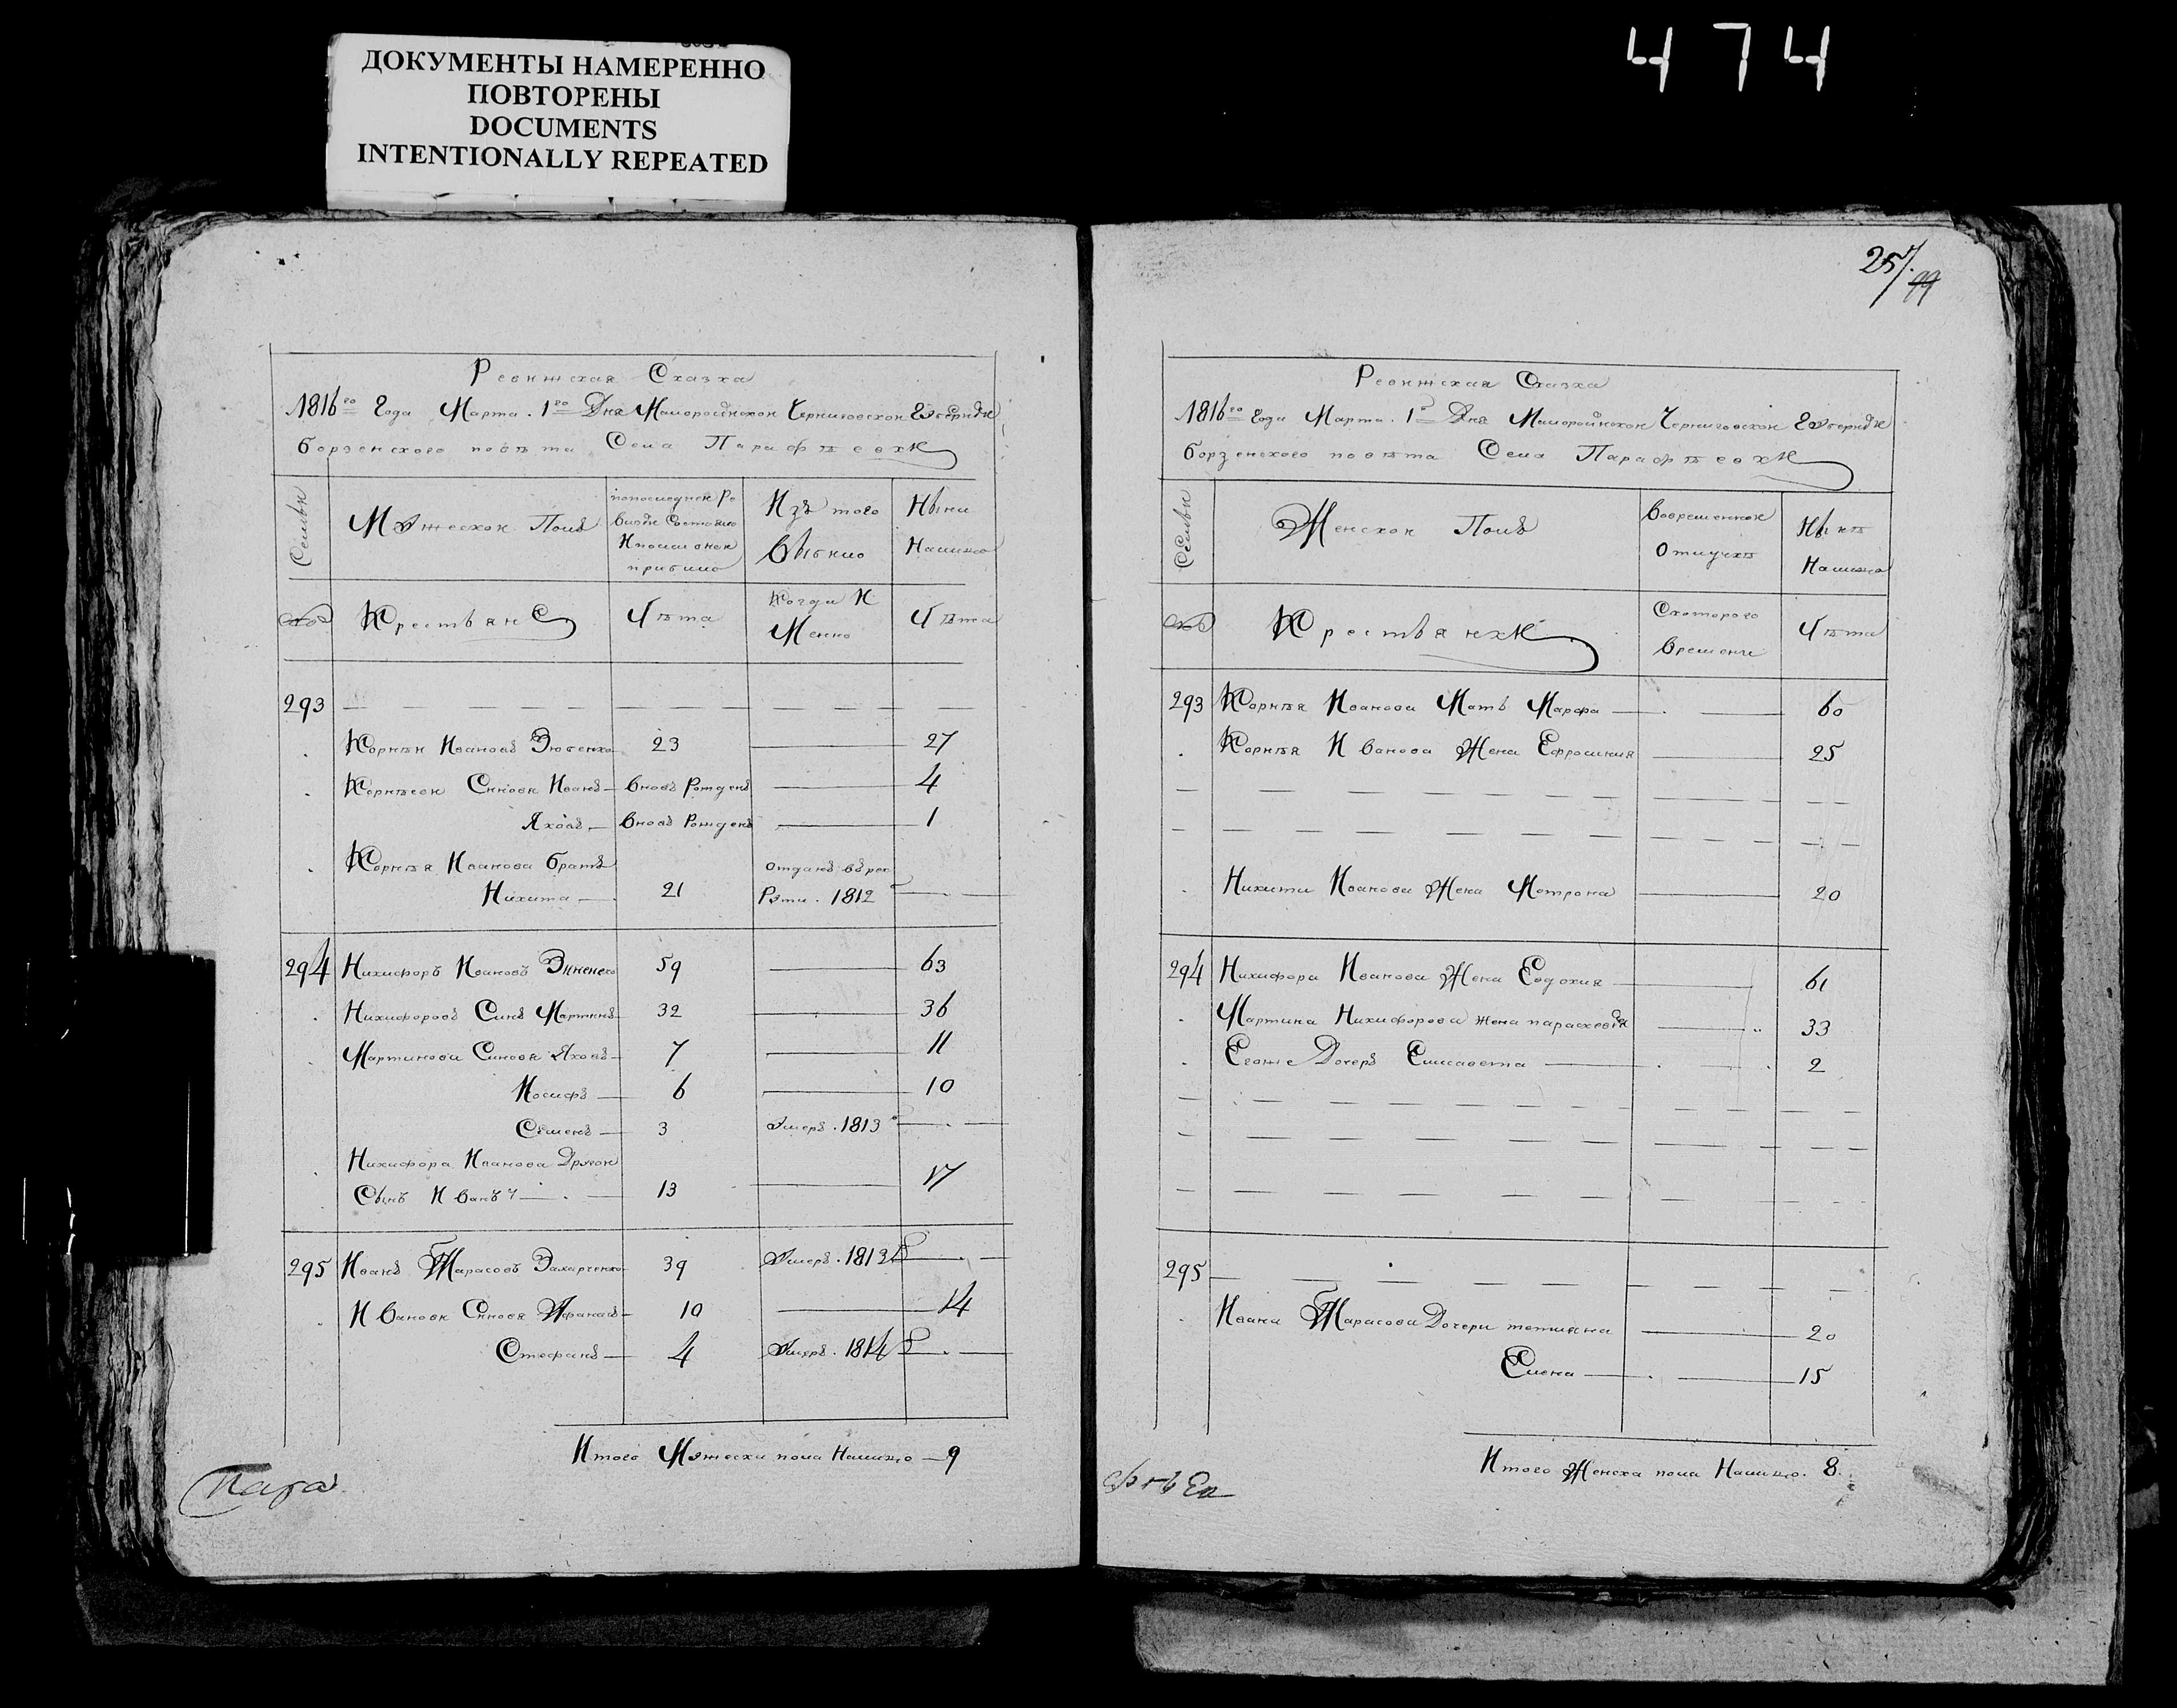 474
ДОКУМЕНТЫ НАМЕРЕННО
ПОВТОРЕНЫ
DOCUMENTS
INTENTIONALLY REPEATED
Ревижская Сказка
1816го Года Марта 1го Дня Малоройнской Черниговской Губерніи
борзенского повѣта Села Парафѣевки
Семьи
Мужеской Полъ
попоследней Ре
визіи Состояло
Ипослѣ оной
прибыло
Изъ того
Выбыло
Ныни
Налицо
№
Крестьяне
Лѣта
Когда И
Менно
Лѣта
293
Корнѣй Ивановъ Зюбенко 23 27
Корнѣеви Синовя Иванъ Вновъ Рожденъ 4
Яковъ Вновъ Рожденъ 1
Корнѣя Иванова братъ
Никита 21 отданъ върек
Рути. 1812
294 Никифоръ Ивановъ 59 63
Никифоровъ Синъ Мартинъ 32 36
Мартинови Синовя Яковъ 7 11
Иосифъ 6 10
Семенъ 3 Умеръ. 1813
Никифора Иванова Другой
Сынъ Иванъ 13 17
295 Иванъ Тарасовъ Захарченко 39 Умеръ. 1813
Иванови Синовя Афанасъ 10 14
Стефанъ 4 Умеръ. 1814
Итого Мужеска пола Налицо 9
Пара
257. 99
Ревижская Сказка
1816го Года Марта. 1го Дня Малоройнской Черниговской Губерніи
борзенского повѣта Села Парафѣевки
Семьи
Женской Полъ
Вовременной
Отлучкѣ
Нынѣ
Налицо
№
Крестьянки
Скоторого
Времени
Лѣта
293 Корнѣя Иванова Мать Марфа 60
Корнѣя Иванова Жена Ефросиния 25
Никити Иванова Жена Мотрона 20
294 Никифора Иванова Жена Евдокия 61
Мартина Никифорова жена параскевия 33
Егоже Дочеръ Елисавета 2
295
Ивана Тарасова Дочери тетияна 20
Елена 15
Итого Женска пола Налицо. 8.